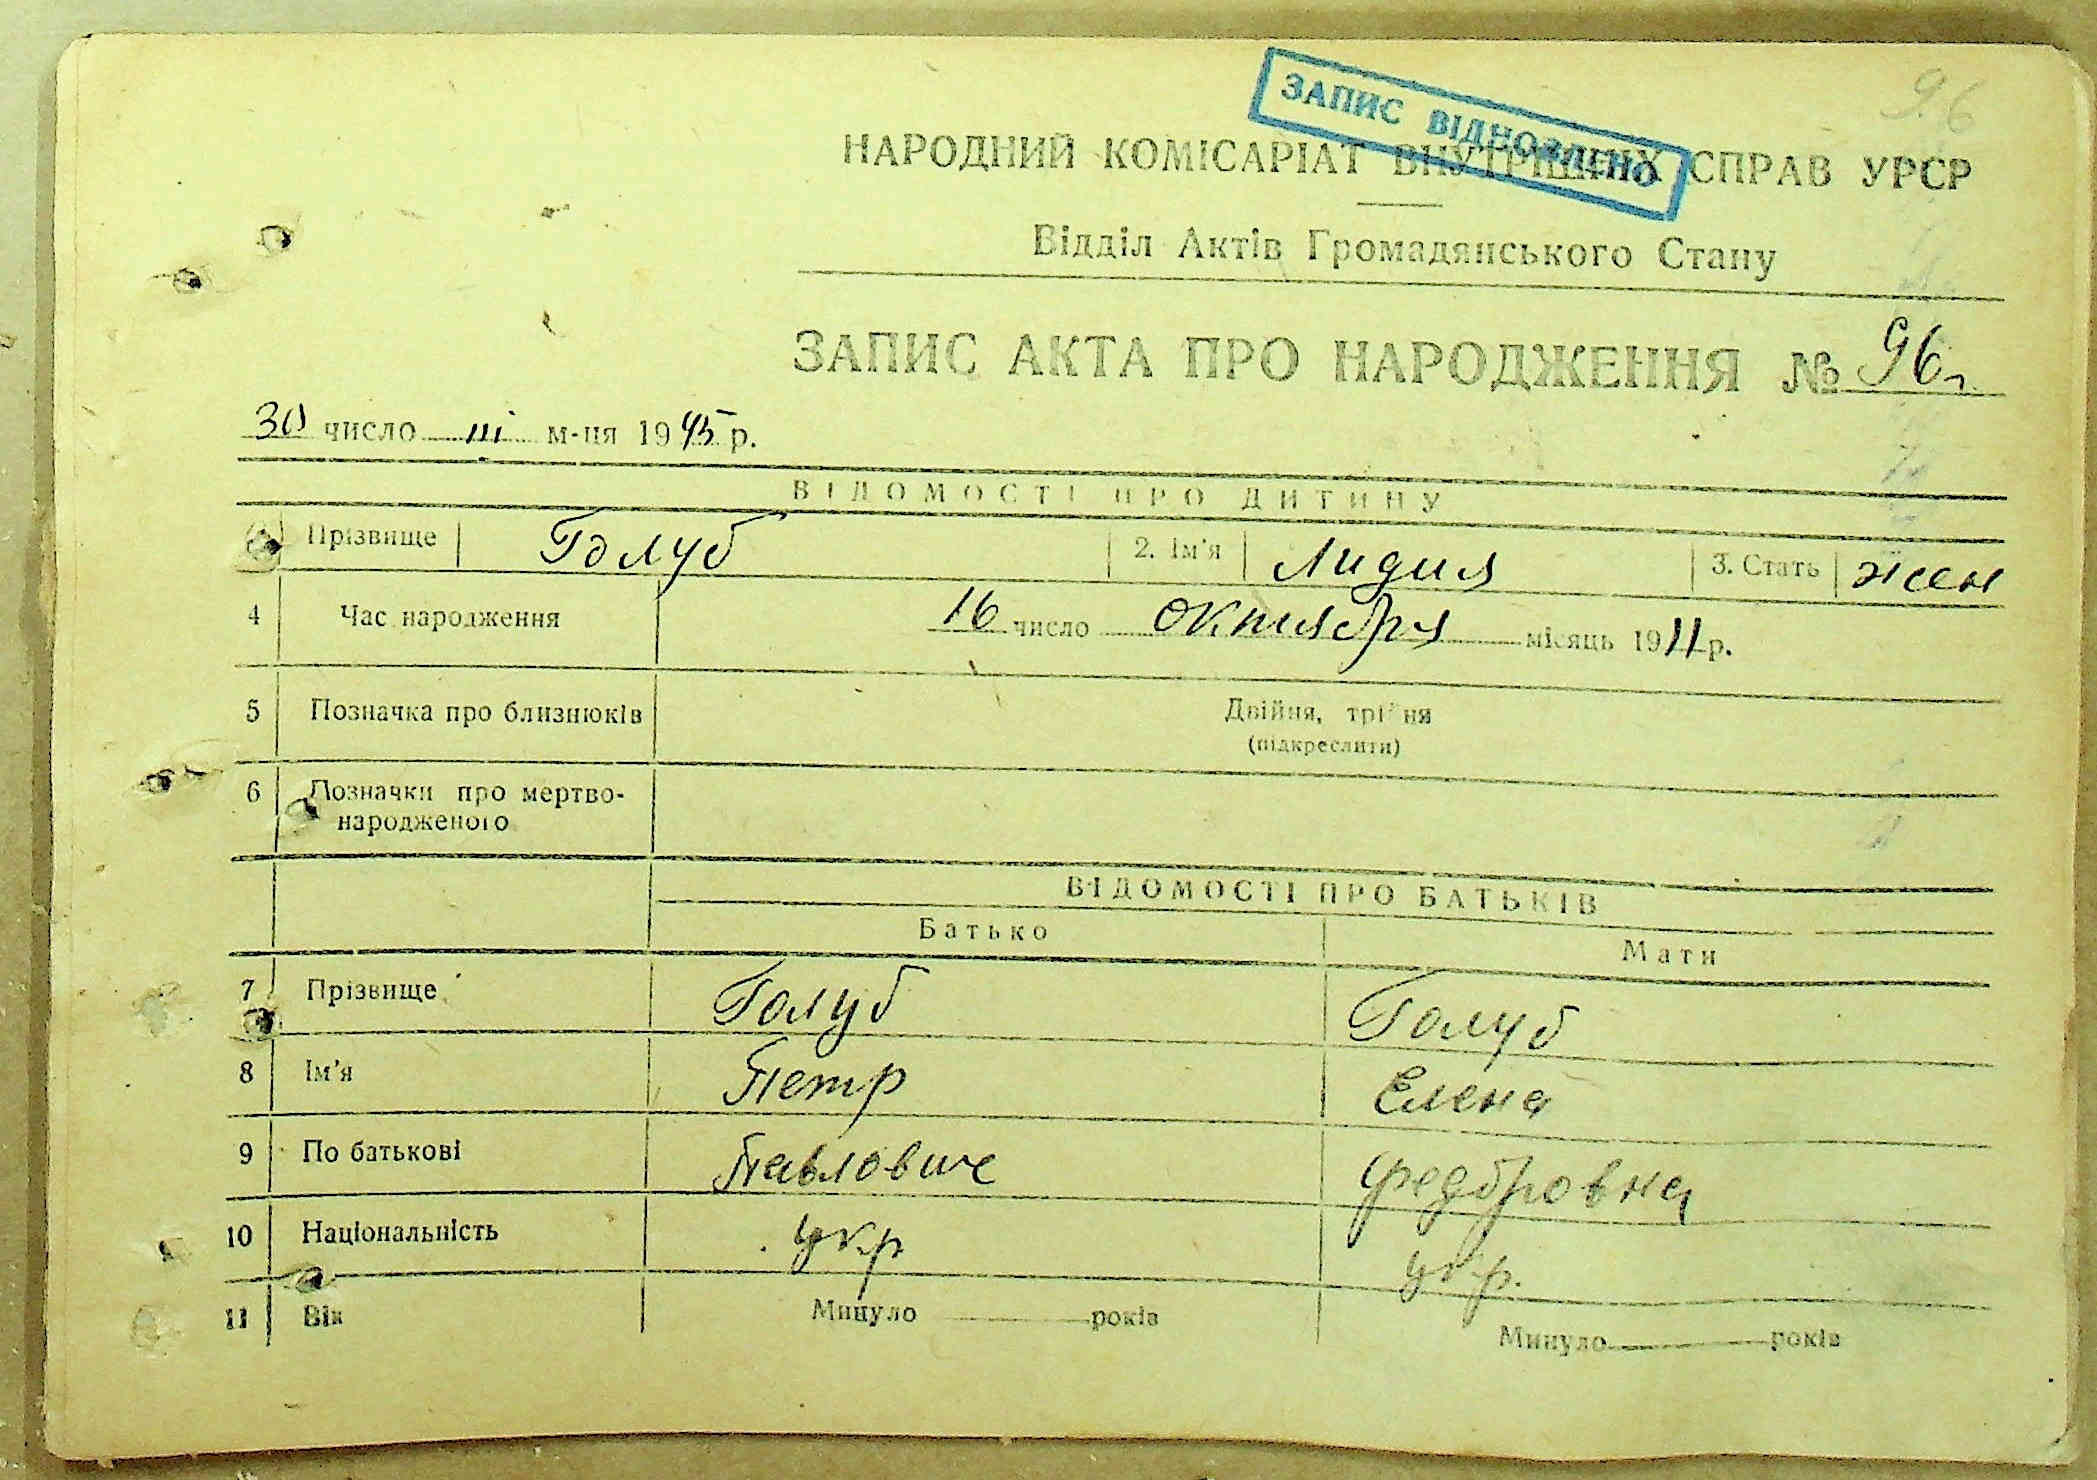 9.6
ЗАПИС ВІДНОВЛЕНО
НАРОДНИЙ КОМІСАРІАТ ВНУТРІШНІХ СПРАВ УРСР
Відділ Актів Громадянського Стану
ЗАПИС АКТА ПРО НАРОДЖЕННЯ № 96
30 число III м-ця 1945 р.
ВІДОМОСТІ ПРО ДИТИНУ
Прізвище Голуб 2. Ім'я Лидия 3. Стать жен
4 Час народження 16 число октября місяць 1911 р.
5 Позначка про близнюків Двійня, трійня
(підкреслити)
6 Позначки про мертво-
народженого
ВІДОМОСТІ ПРО БАТЬКІВ
Батько Мати
7 Прізвище Голуб Голуб
8 Ім'я Петр Елена
9 По батькові Павлович Федоровна
10 Національність укр укр.
11 Вік Минуло років Минуло років